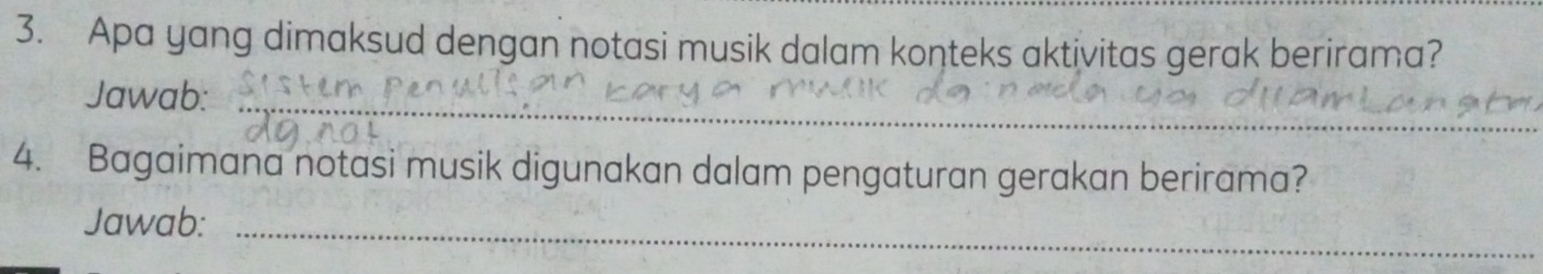 3. Apa yang dimaksud dengan notasi musik dalam konteks aktivitas gerak berirama?
Jawab: Sistem penulisan karya musik dg nada yg
dg not
4. Bagaimana notasi musik digunakan dalam pengaturan gerakan berirama?
Jawab: